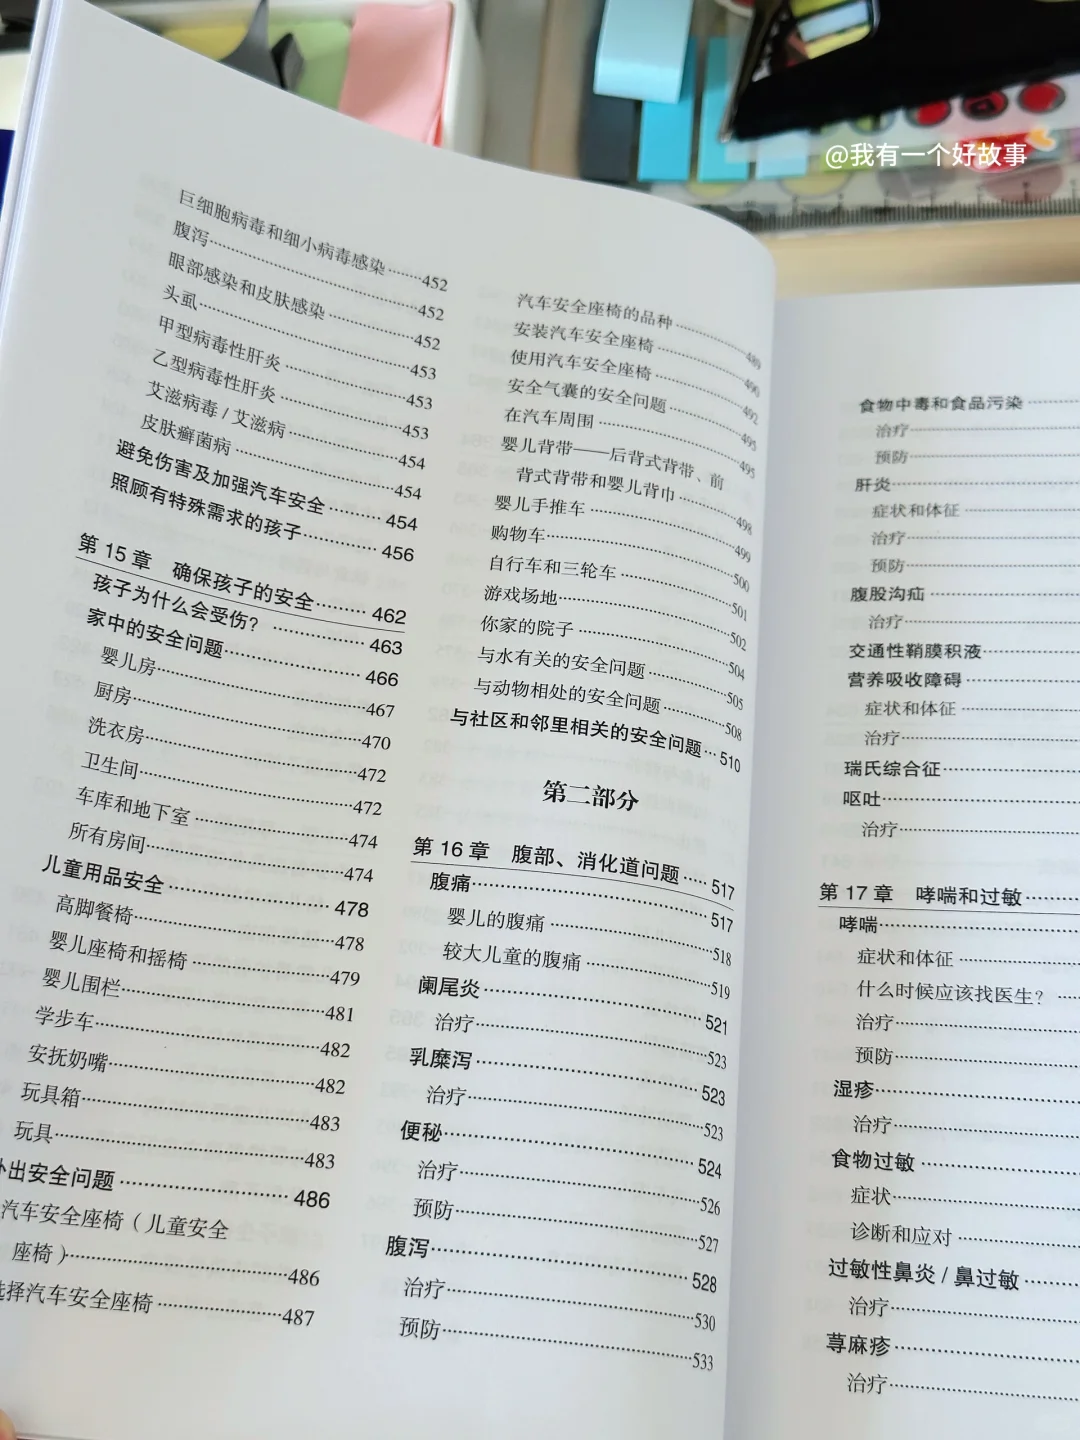 @我有一个好故事
巨细胞病毒和细小病毒感染········452
腹泻········452
眼部感染和皮肤感染········452
头虱········453
甲型病毒性肝炎········453
乙型病毒性肝炎········453
艾滋病毒/艾滋病········454
皮肤癣菌病········454
避免伤害及加强汽车安全········454
照顾有特殊需求的孩子········456
第15章 确保孩子的安全········462
孩子为什么会受伤？········463
家中的安全问题········466
婴儿房········467
厨房········470
洗衣房········472
卫生间········472
车库和地下室········474
所有房间········474
儿童用品安全········478
高脚餐椅········478
婴儿座椅和摇椅········479
婴儿围栏········481
学步车········482
安抚奶嘴········482
玩具箱········483
玩具········483
出安全问题········486
汽车安全座椅（儿童安全
座椅）········486
择汽车安全座椅········487
汽车安全座椅的品种········489
安装汽车安全座椅········490
使用汽车安全座椅········492
安全气囊的安全问题········495
在汽车周围········495
婴儿背带——后背式背带、前
背式背带和婴儿背巾········498
婴儿手推车········499
购物车········500
自行车和三轮车········501
游戏场地········502
你家的院子········504
与水有关的安全问题········505
与动物相处的安全问题········508
与社区和邻里相关的安全问题···510
第二部分
第16章 腹部、消化道问题·····517
腹痛········517
婴儿的腹痛········518
较大儿童的腹痛········519
阑尾炎········521
治疗········523
乳糜泻········523
治疗········523
便秘········524
治疗········526
预防········527
腹泻········528
治疗········530
预防········533
食物中毒和食品污染········
治疗········
预防········
肝炎········
症状和体征········
治疗········
预防········
腹股沟疝········
治疗········
交通性鞘膜积液········
营养吸收障碍········
症状和体征········
治疗········
瑞氏综合征········
呕吐········
治疗········
第17章 哮喘和过敏········
哮喘········
症状和体征········
什么时候应该找医生？····
治疗········
预防········
湿疹········
治疗········
食物过敏········
症状········
诊断和应对········
过敏性鼻炎/鼻过敏········
治疗········
荨麻疹········
治疗········